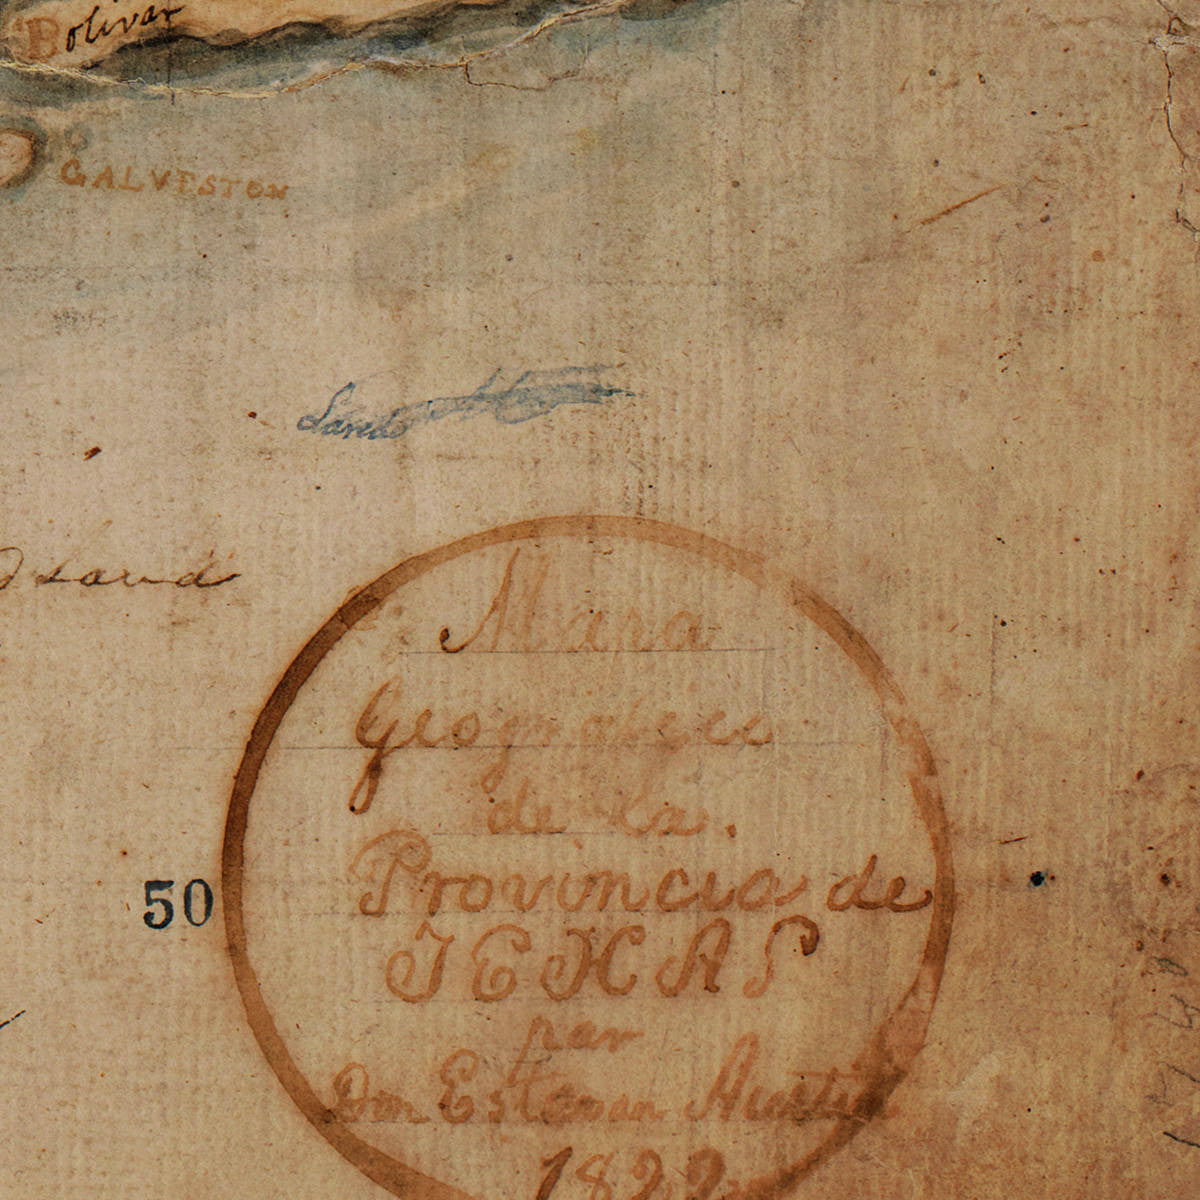 Bolivar
GALVESTON
Mapa
Geografica
de la.
Provincia de
TEXAS
por
Don Estevan Austin
1822
50